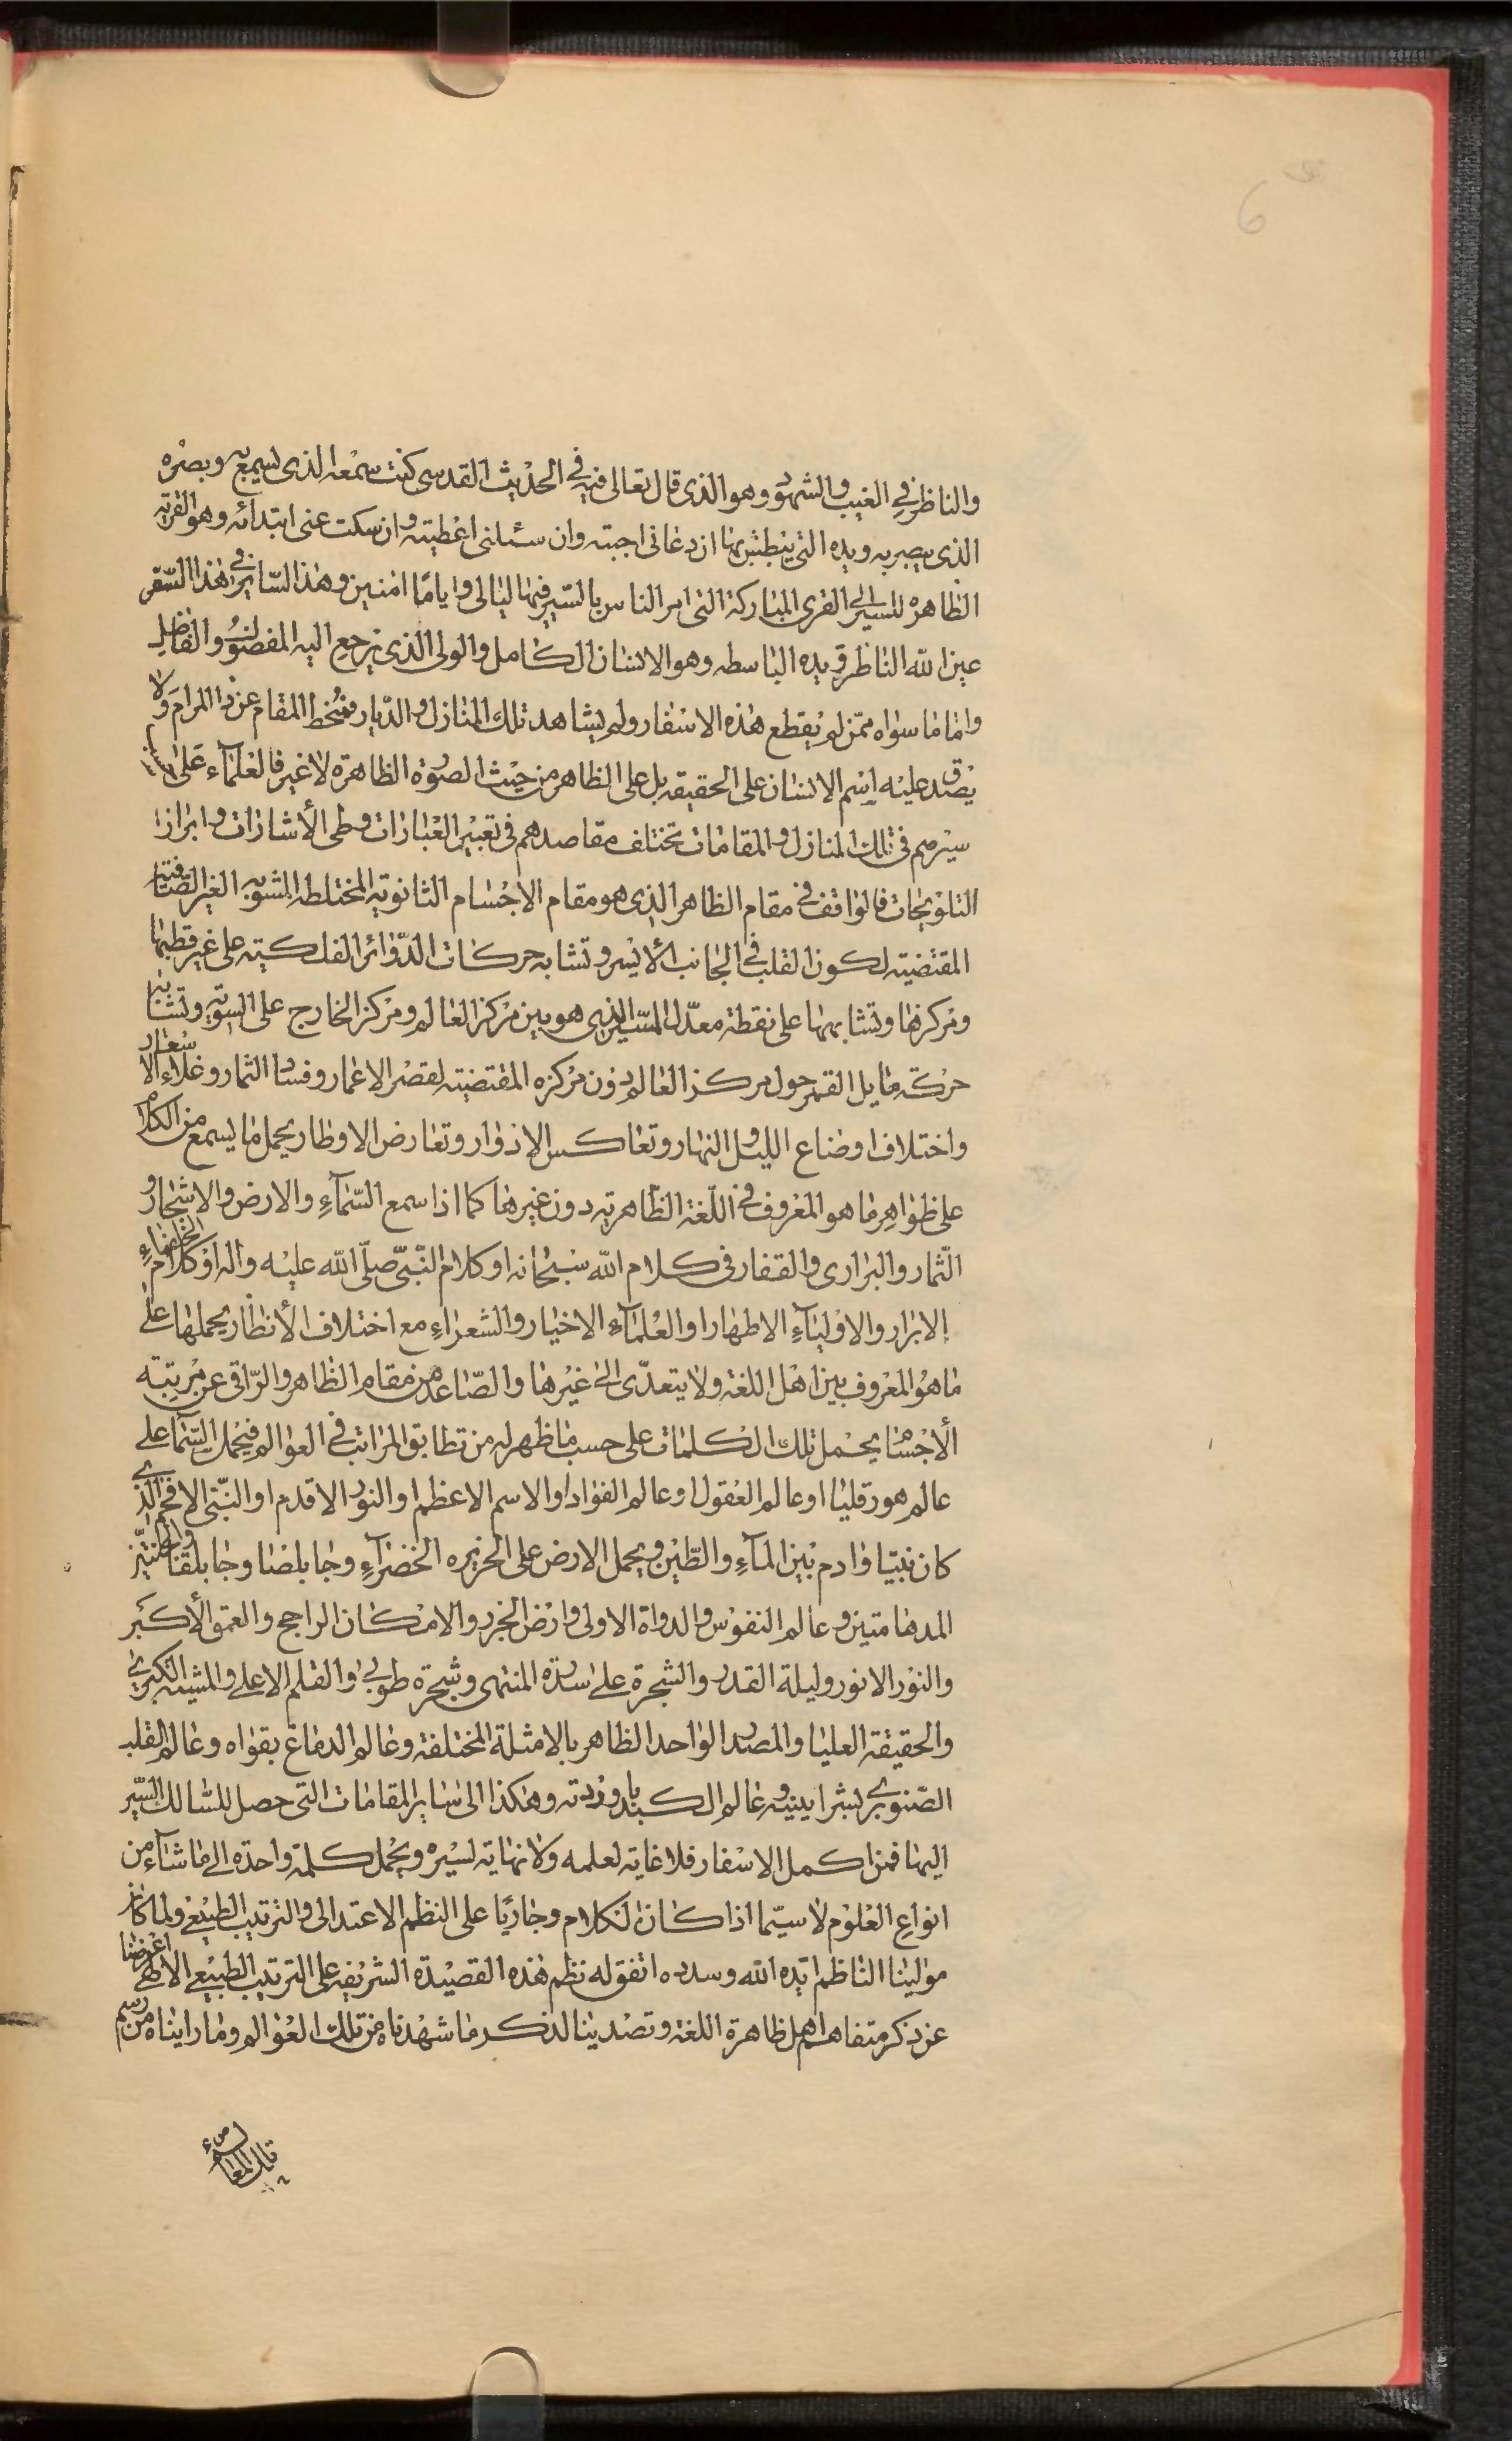 6
والناظر في الغيب والشهود وهو الذي قال تعالى فيه في الحديث القدسي كنت سمعه الذي يسمع به وبصره
الذي يبصر به ويده التي يبطش بها ان دعاني اجبته وان سئلني اعطيته وان سكت عني ابتدائه وهو القرية
الظاهرة للسير الى القرى المباركة التي امر الناس بالسير فيها ليالي واياما امنين وهذا السائر في هذا السفر
عين الله الناظرة ويده الباسطه وهو الانسان الكامل والولي الذي يرجع اليه المفضول والفاضل
واما ما سواه ممن لم يقطع هذه الاسفار ولم يشاهد تلك المنازل والديار فمنحط المقام عن ذا المرام ولا
يصدق عليه اسم الانسان على الحقيقه بل على الظاهر من حيث الصورة الظاهرة لا غير فالعلماء على
سيرهم في تلك المنازل والمقامات تختلف مقاصدهم في تعبير العبارات وطي الأشارات وابراز
التلويحات فالواقف في مقام الظاهر الذي هو مقام الاجسام الثانوية المختلطه المشوبه الغير الصافية
المقتضية لكون القلب في الجانب الأيسر وتشابه حركات الدوائر الفلكية على غير قطبها
ومركزها وتشابهها على نقطة معدل المسير الذي هو بين مركز العالم ومركز الخارج على السوية وتشابه
حركة مايل القمر حول مركز العالم دون مركزه المقتضية لقصر الاعمار وفساد الثمار وغلاء الاسعار
واختلاف اوضاع الليل والنهار وتعاكس الادوار وتعارض الاوطار يحمل ما يسمع من الكلام
على ظواهر ما هو المعروف في اللغة الظاهرية دون غيرها كما اذا سمع السمآء والارض والاشجار و
الثمار والبراري والقفار في كلام الله سبحانه او كلام النبي صلى الله عليه واله او كلام الخلفاء
الابرار والاوليآء الاطهار او العلمآء الاخيار والشعراء مع اختلاف الأنظار يحملها على
ما هو المعروف بين اهل اللغة ولا يتعدى الى غيرها والصاعد من مقام الظاهر والراقي عن مرتبة
الأجسام يحمل تلك الكلمات على حسب ما ظهر له من تطابق المراتب في العوالم فيحمل السماء على
عالم هورقليا او عالم العقول او عالم الفؤاد او الاسم الاعظم او النور الاقدم او النبي الافخم الذي
كان نبيا وادم بين المآء والطين ويحمل الارض على الجزيره الخضرآء وجابلصا وجابلقا والجنتين
المدهامتين وعالم النفوس والدواة الاولى وارض الجرز والامكان الراجح والعمق الأكبر
والنور الانور وليلة القدر والشجرة على سدرة المنتهى وشجرة طوبى والقلم الاعلى والمشيه الكبرى
والحقيقة العليا والمصدر الواحد الظاهر بالامثلة المختلفة وعالم الدماغ بقواه وعالم القلب
الصنوبري بشرايينه وعالم الكبد باوردته وهكذا الى ساير المقامات التي حصل للسالك السير
اليها فمن اكمل الاسفار فلا غاية لعلمه ولا نهاية لسيره ويحمل كلمة واحدة الى ما شآء من
انواع العلوم لا سيما اذا كان الكلام وجاريا على النظم الاعتدالي والترتيب الطبيعي ولما كان
مولينا الناظم ايده الله وسدده اتفق له نظم هذه القصيدة الشريفه على الترتيب الطبيعي الالهي اعرضنا
عن ذكر متفاهم اهل ظاهرة اللغة وتصدينا لذكر ما شهدناه من تلك العوالم وما رايناه من رسم
تلك المعالم